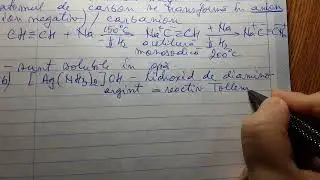 atomul de carbon se transformă în anion
ion negativ) / carbanion
CH≡CH + Na 150°C -½H₂ Na⁺C⁻≡CH + Na -½H₂ 200°C Na⁺C⁻≡C⁻Na⁺
acetilură
monosodică
- sunt solubile în apă
b) [Ag(NH₃)₂]OH - hidroxid de diamino
argint = reactiv Tollens